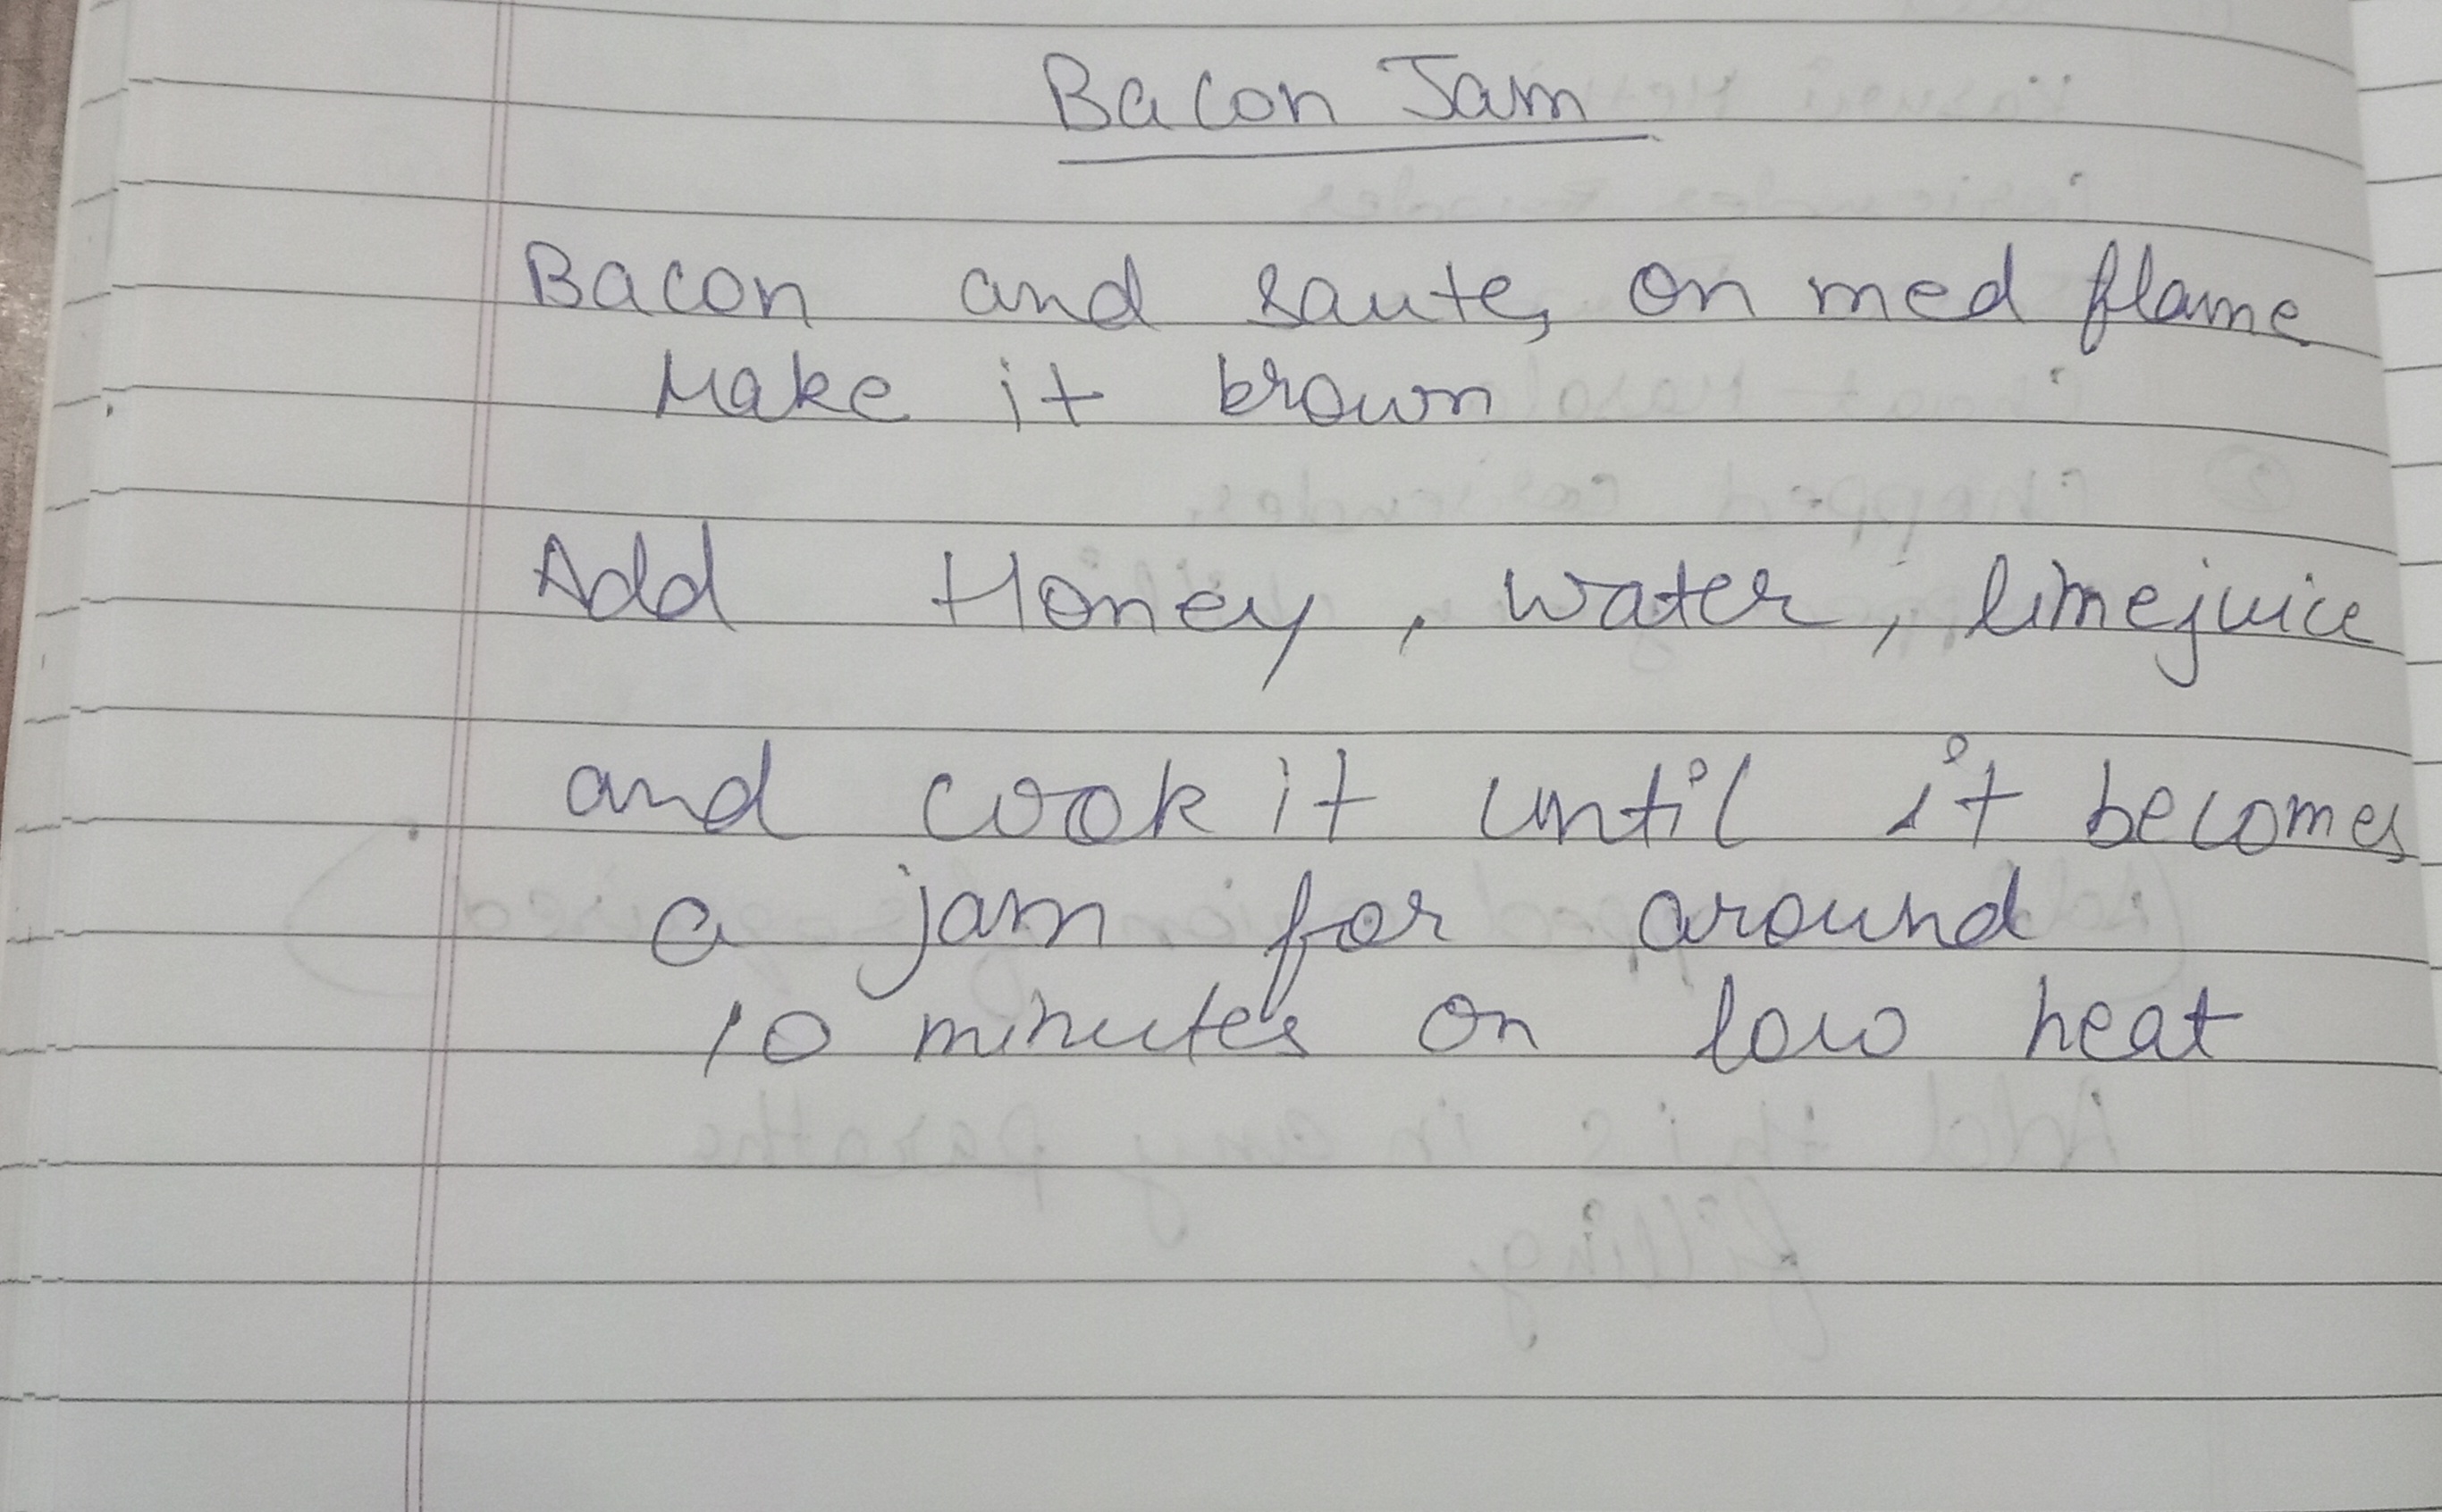 Bacon Jam
Bacon and saute, on med flame
Make it brown
Add Honey, water, limejuice
and cook it until it becomes
a jam for around
10 minutes on low heat